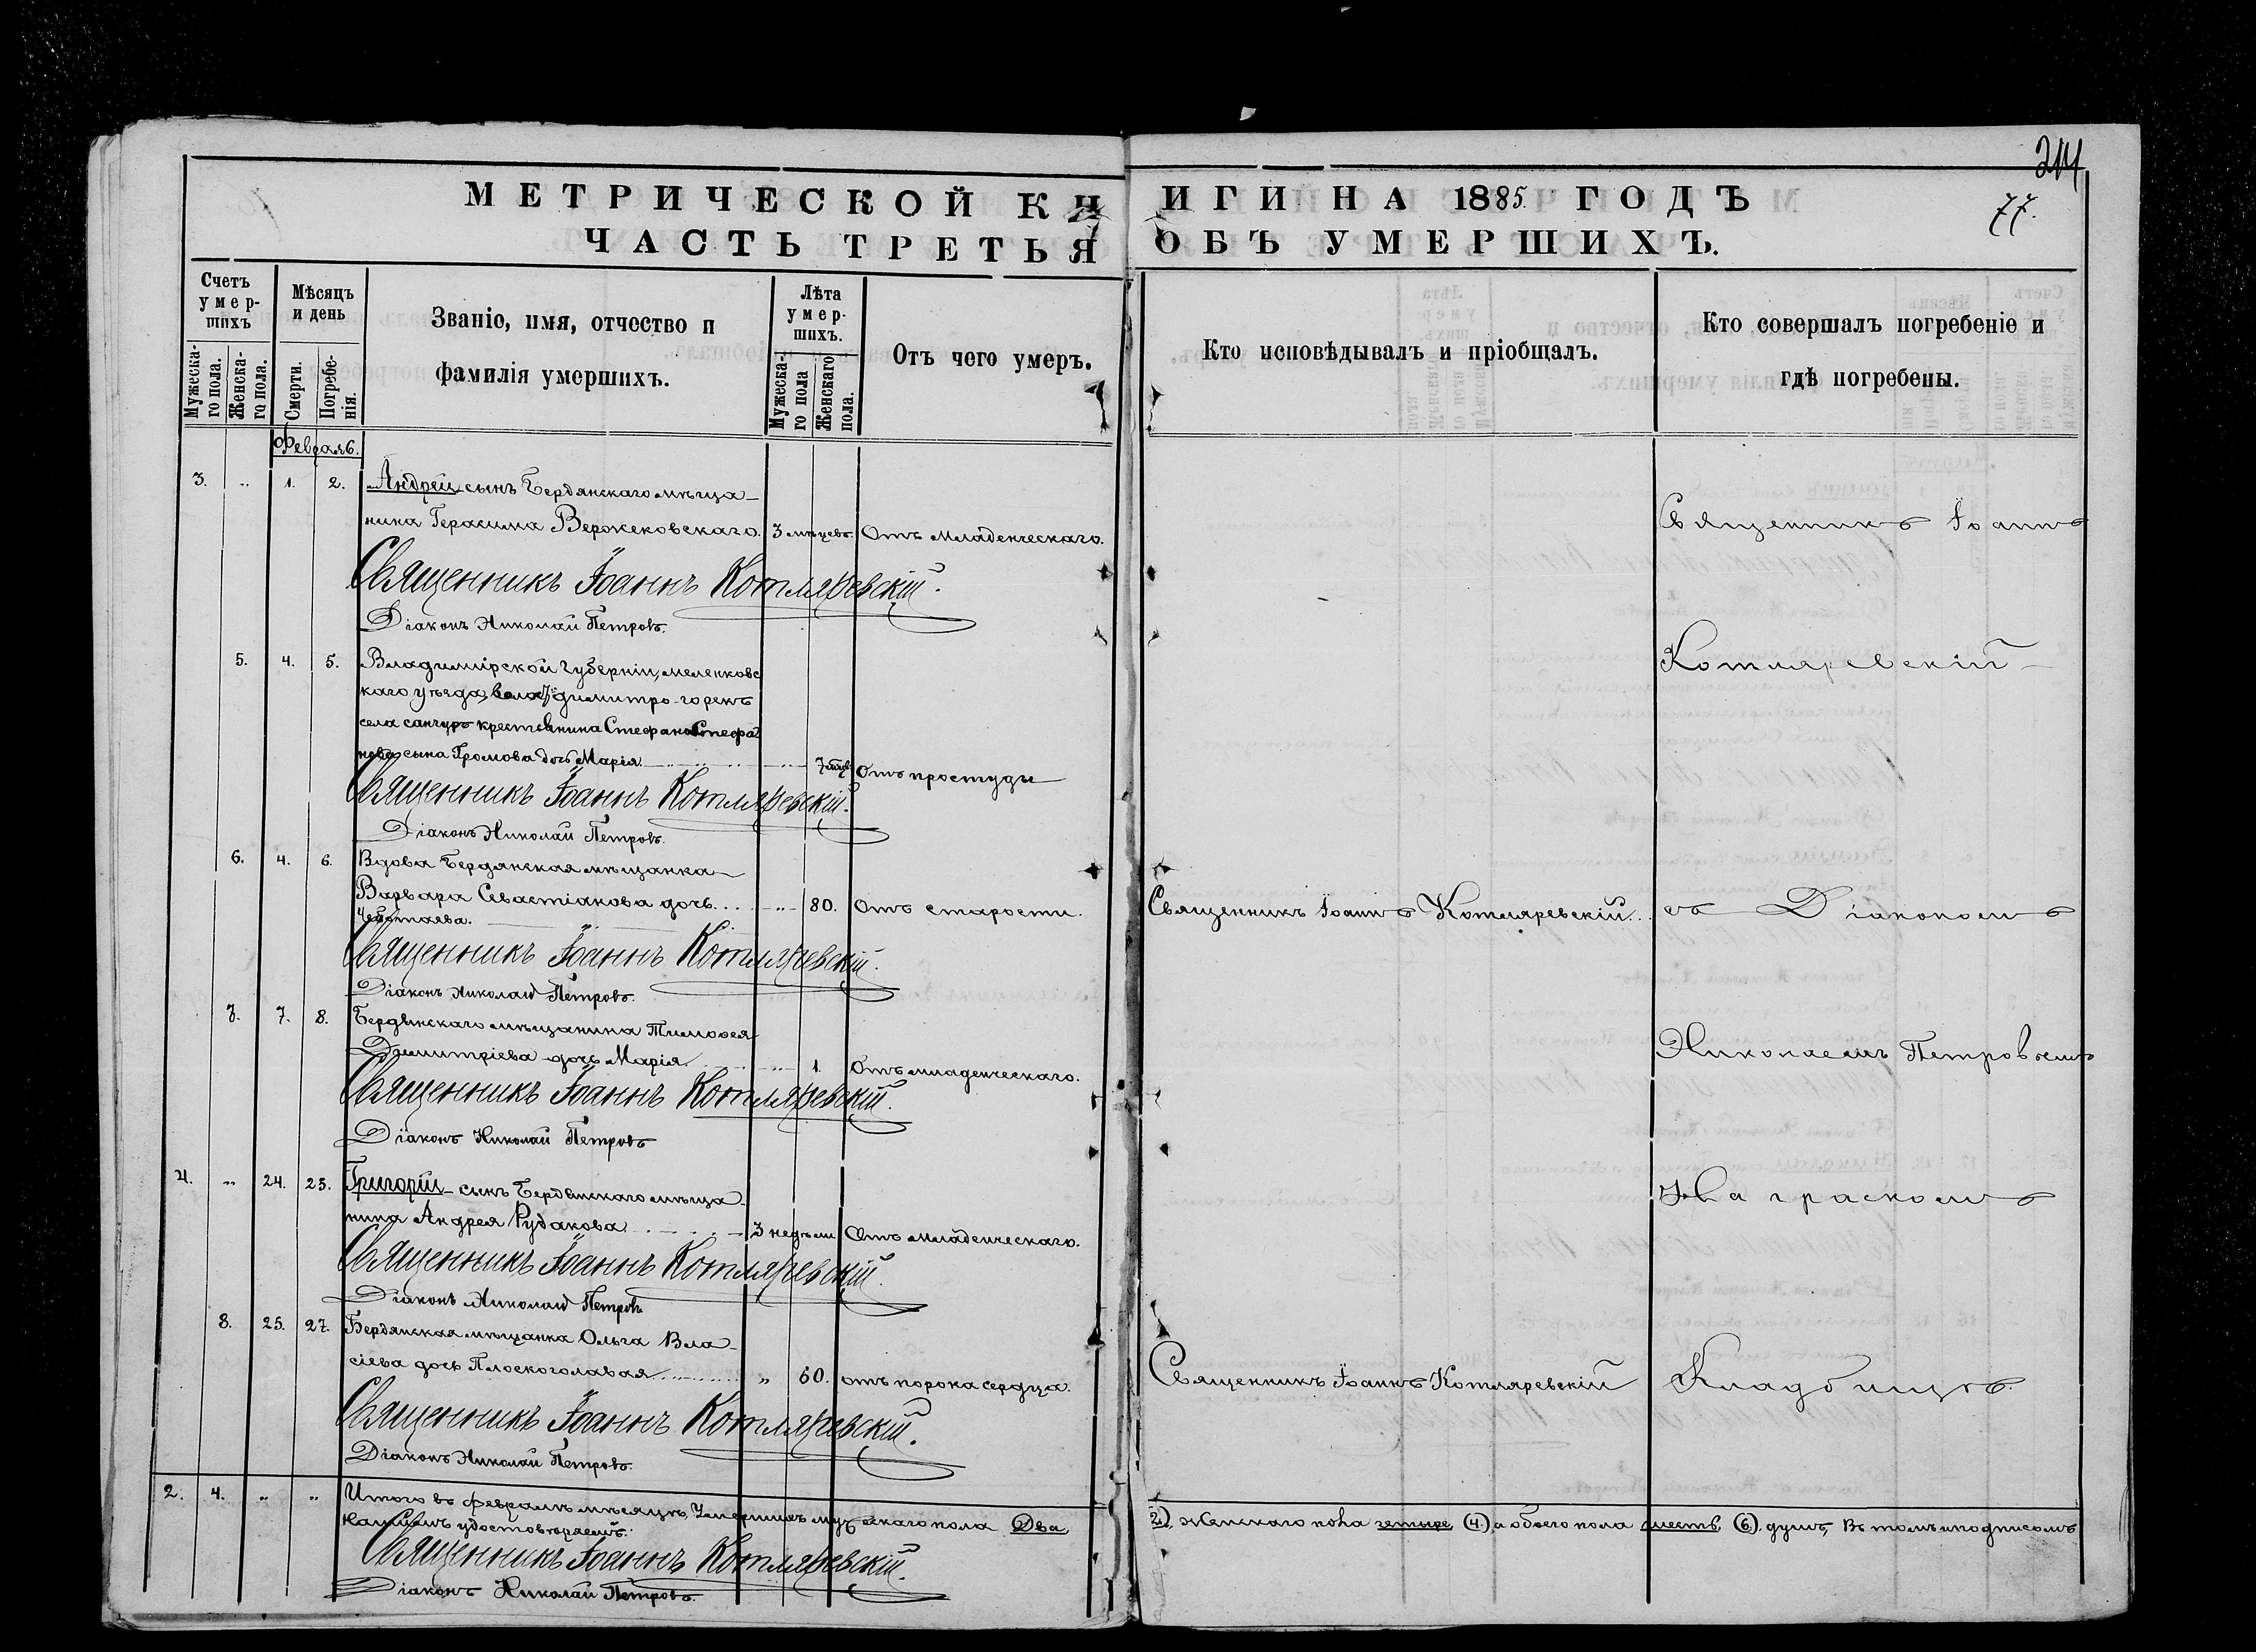 214
МЕТРИЧЕСКОЙ КНИГИ НА 1885 ГОДЪ
77.
ЧАСТЬ ТРЕТЬЯ ОБЪ УМЕРШИХЪ.
Счетъ умер-шихъ
Мужеска-го пола.
Женска-го пола.
Мѣсяцъ и день
Смерти.
Погребе-нія.
Званіе, имя, отчество и
фамилія умершихъ.
Лѣта умер-шихъ.
Мужеска-го пола
Женскаго пола.
Отъ чего умеръ.
Кто исповѣдывалъ и пріобщалъ.
Кто совершалъ погребеніе и
гдѣ погребены.
Февраль.
3. „ 1. 2. Андрей сынъ Бердянскаго мѣща-
нина Герасима Вержековскаго. 3 мѣцевъ. Отъ младенческаго. Священникъ Іоаннъ
Священникъ Іоаннъ Котляревскій.
Діаконъ Николай Петровъ.
5. 4. 5. Владимірской губерніи, меленковс Котляревскій
каго уѣзда, димитро-горск
села санчуръ крестьянина Стефана Стефа
нова сына Громова дочь Марія. 7 Отъ простуды
Священникъ Іоаннъ Котляревскій.
Діаконъ Николай Петровъ.
6. 4. 6. Вдова Бердянская мѣщанка
Варвара Севастіанова дочь „ 80. Отъ старости. Священникъ Іоаннъ Котляревскій. съ Діакономъ
Чеботаева.
Священникъ Іоаннъ Котляревскій.
Діаконъ Николай Петровъ.
7. 7. 8. Бердянскаго мѣщанина Тимоѳея
Димитріева дочь Марія „ 1. Отъ младенческаго. Николаемъ Петровымъ
Священникъ Іоаннъ Котляревскій.
Діаконъ Николай Петровъ
4. „ 24. 25. Григорій сынъ Бердянскаго мѣща-
нина Андрея Рудакова 3 недѣли Отъ младенческаго. На градскомъ
Священникъ Іоаннъ Котляревскій.
Діаконъ Николай Петровъ
8. 25. 27. Бердянская мѣщанка Ольга Вла-
сіева дочь Плоскоголавая „ 60. отъ порока сердца. Священникъ Іоаннъ Котляревскій Кладбищѣ.
Священникъ Іоаннъ Котляревскій.
Діаконъ Николай Петровъ.
2. 4. „ „ Итого въ февралѣ мѣсяцѣ, Умершихъ мужескаго пола Два (2.), женскаго пола четыре (4.) а обоего пола шесть (6). душъ, Въ томъ и подписомъ
нашимъ удостовѣряемъ:
Священникъ Іоаннъ Котляревскій.
Діаконъ Николай Петровъ.